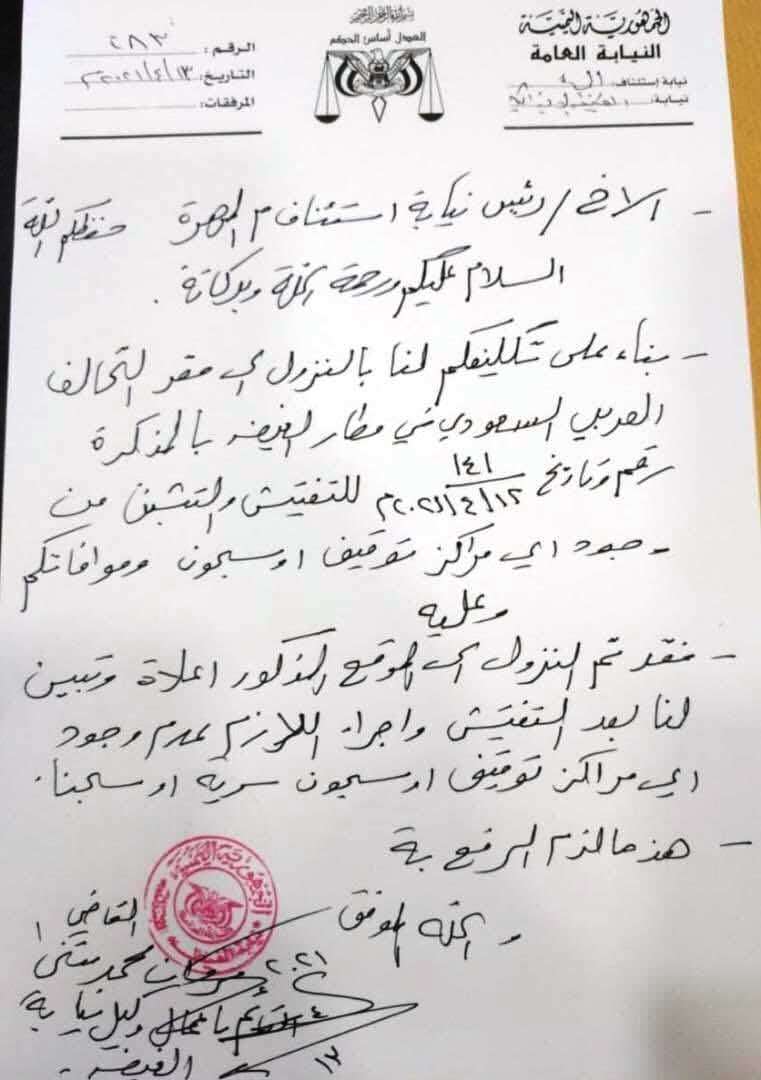 الجمهورية اليمنية
النيابة العامة
نيابة إستئناف: المهرة
نيابة: الغيضة الإبتدائية
بسم الله الرحمن الرحيم
العدل أساس الحكم
الرقم: ٢٨٣
التاريخ: ١٣/٤/٢٠٢١م
المرفقات:
- الاخ/رئيس نيابة استئناف م المهرة حفظكم الله
السلام عليكم ورحمة الله وبركاتة.
- بناء على تكليفكم لنا بالنزول الى مقر التحالف
العربي السعودي في مطار الغيضه بالمذكرة
رقم وتاريخ ١٤١ ١٢/٤/٢٠٢١م للتفتيش والتثبت من
وجود اي مراكز توقيف او سجون وموافاتكم
وعليه
- فقد تم النزول الى الموقع المذكور اعلاة وتبين
لنا بعد التفتيش واجراء اللازم عدم وجود
اي مراكز توقيف او سجون سرية او سجناء.
- هذا مالزم الرفع بة
والله الموفق
القاضي /
محمد مثنى
القائم باعمال وكيل نيابة
الغيضه
١٣
٤
٢٠٢١
الجمهورية اليمنية